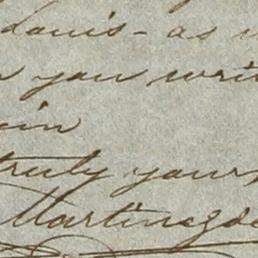 Louis - as
you writ
truly yours
Martinezde